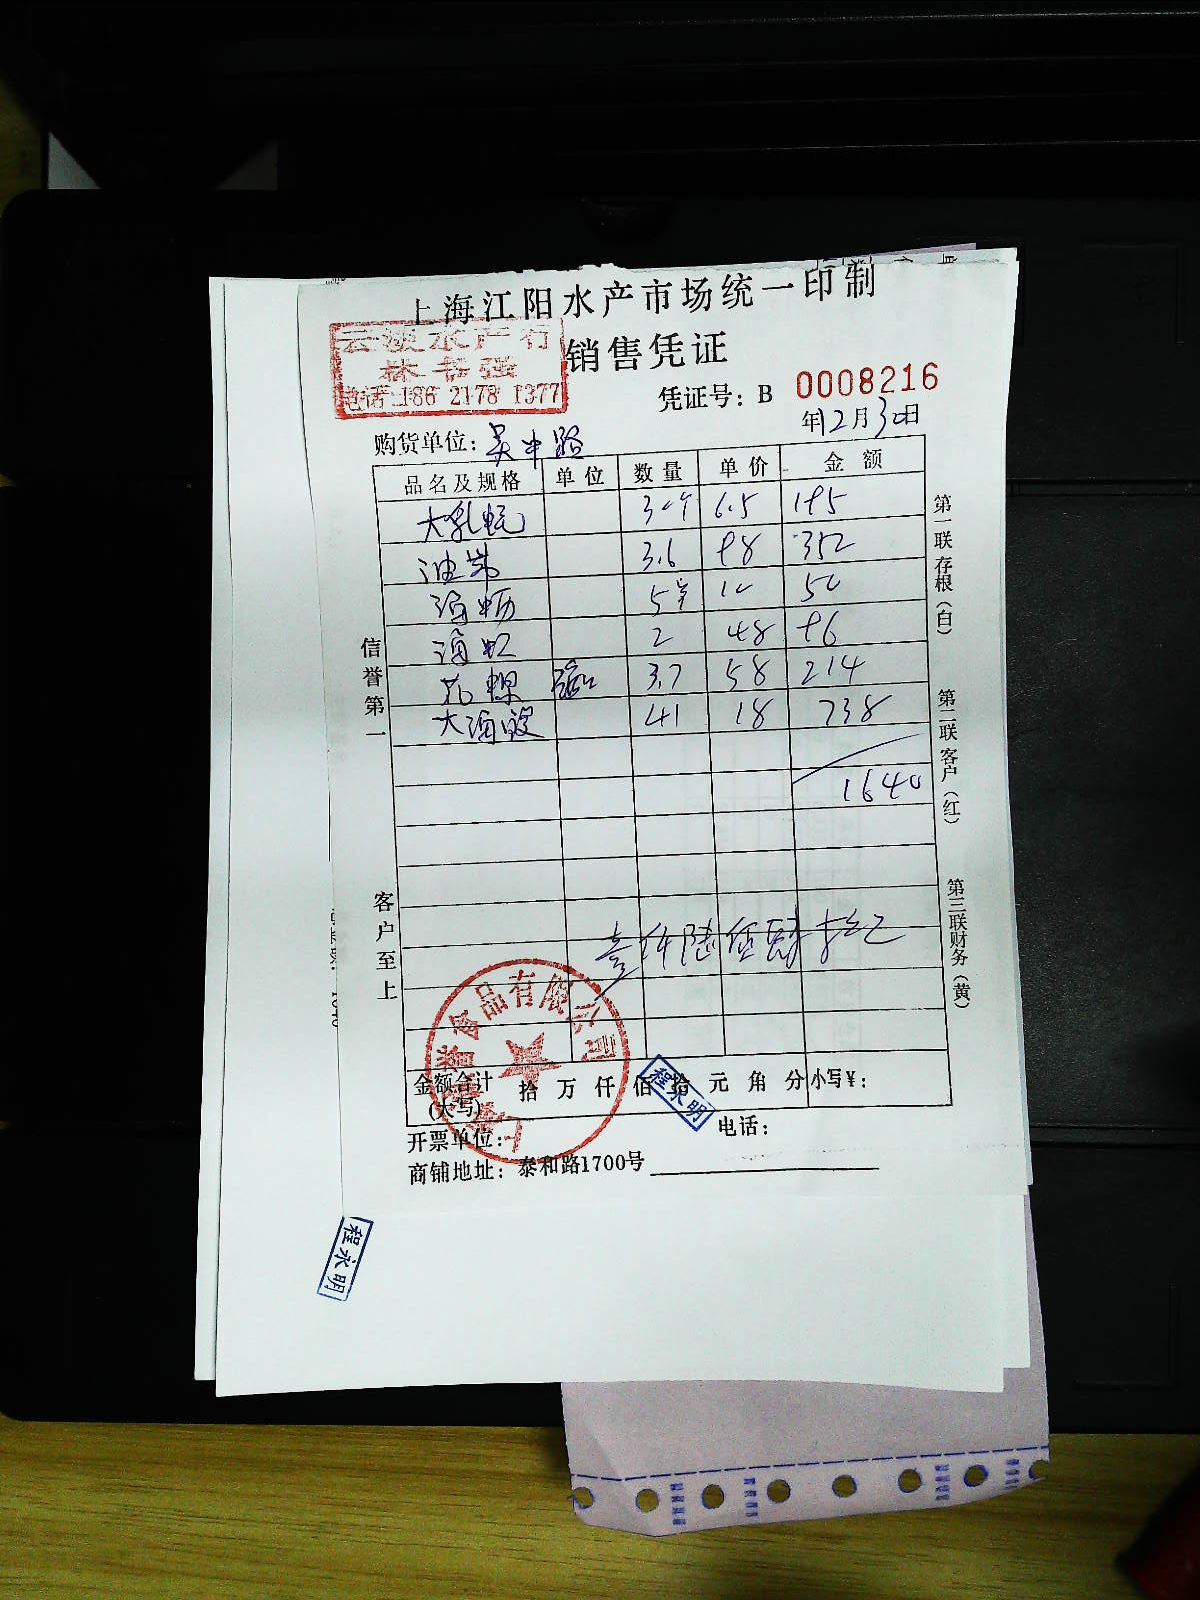 上海江阳水产市场统一印制
销售凭证
云淡水产行
林书强
电话:186 2178 1377
凭证号: B 0008216
年12月30日
购货单位: 吴中路
品名及规格 单位 数量 单价 金额
大乳蚝 30个 6.5 195
油 3.6 98 352
海蛎 5斤 10 50
海虹 2 48 96
花螺 3.7 58 214
大海 41 18 738
1640
信誉第一
客户至上
壹仟陆佰肆拾元
第一联存根(白)
第二联客户(红)
第三联财务(黄)
食品有限公司
金额合计(大写) 拾万仟佰拾元角分 小写¥:
程永明
开票单位: 电话:
商铺地址: 泰和路1700号
程永明